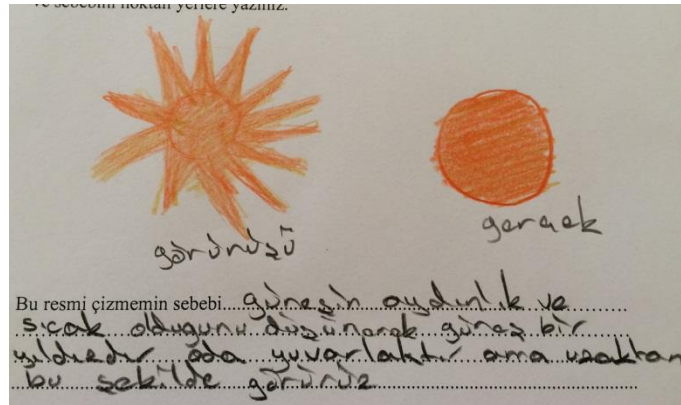 ve sebebini noktalı yerlere yazınız.
görünüşü
gerçek
Bu resmi çizmemin sebebi güneşin aydınlık ve
sıcak olduğunu düşünerek güneş bir
yıldızdır oda yuvarlaktır ama uzaktan
bu şekilde görürüz